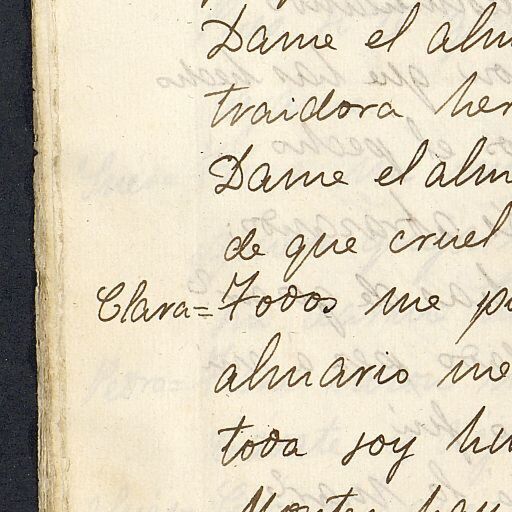 Dame el alm
traidora her
Dame el alm
de que cruel
Clara= Todos me p
almario me
toda soy hu